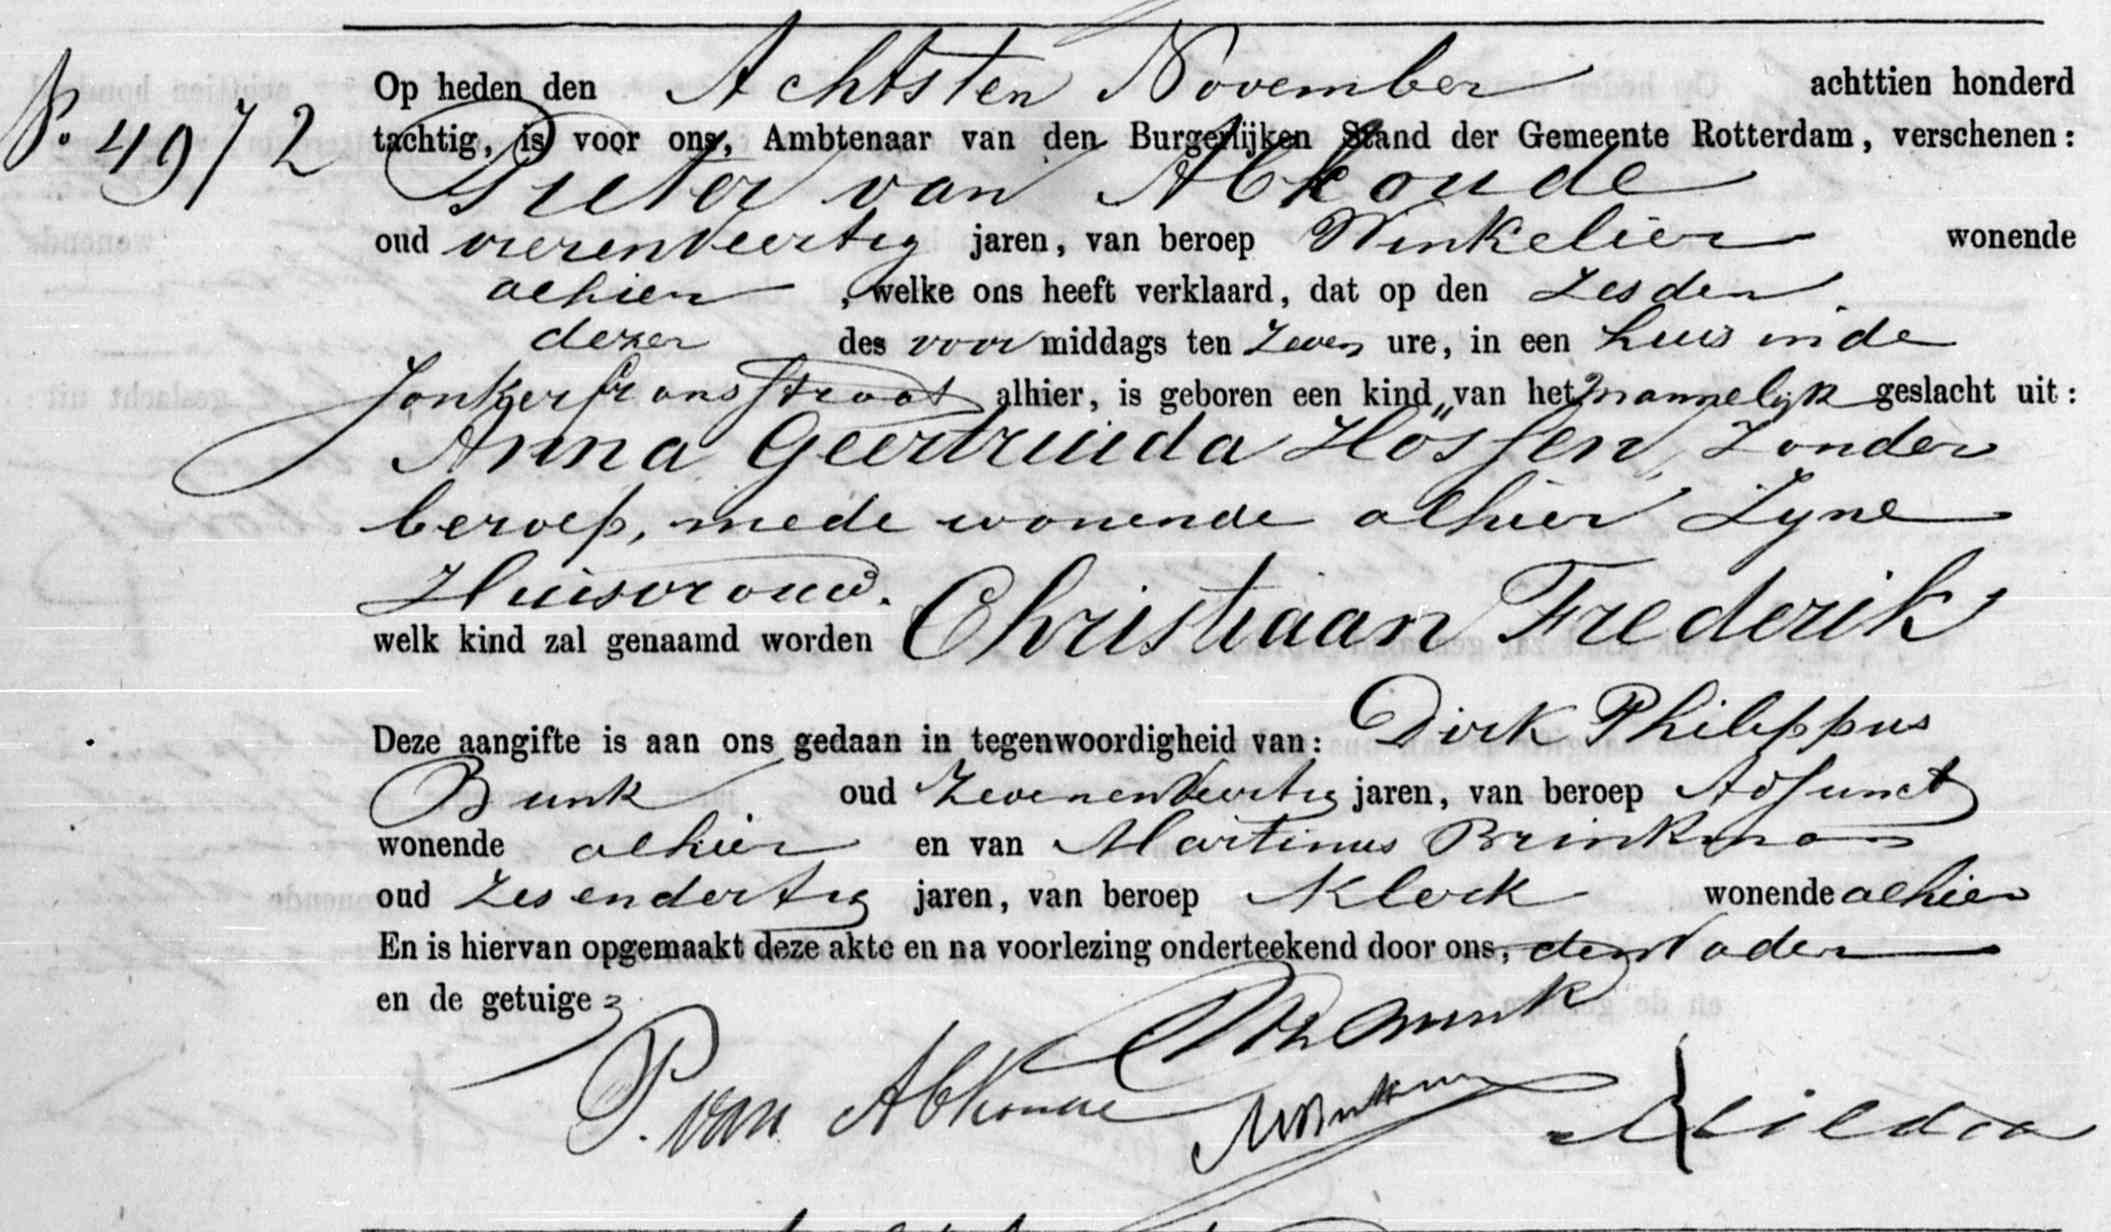 No. 4972
Op heden den Achtsten November achttien honderd
tachtig, is voor ons, Ambtenaar van den Burgerlijken Stand der Gemeente Rotterdam, verschenen:
Pieter van Abkoude
oud vierenveertig jaren, van beroep Winkelier wonende
alhier, welke ons heeft verklaard, dat op den zesden
dezer des voormiddags ten zeven ure, in een huis in de
Jonkerfransstraat alhier, is geboren een kind van het mannelijk geslacht uit:
Anna Geertruida Hössen, zonder
beroep, mede wonende alhier Zyne
Huisvrouw.
welk kind zal genaamd worden Christiaan Frederik
Deze aangifte is aan ons gedaan in tegenwoordigheid van: Dirk Philippus
Bunk oud zevenenveertig jaren, van beroep Adjunct
wonende alhier en van Martinus Brinkman
oud zesendertig jaren, van beroep Klerk wonende alhier
En is hiervan opgemaakt deze akte en na voorlezing onderteekend door ons, den Vader
en de getuigen
P. van Abkoude